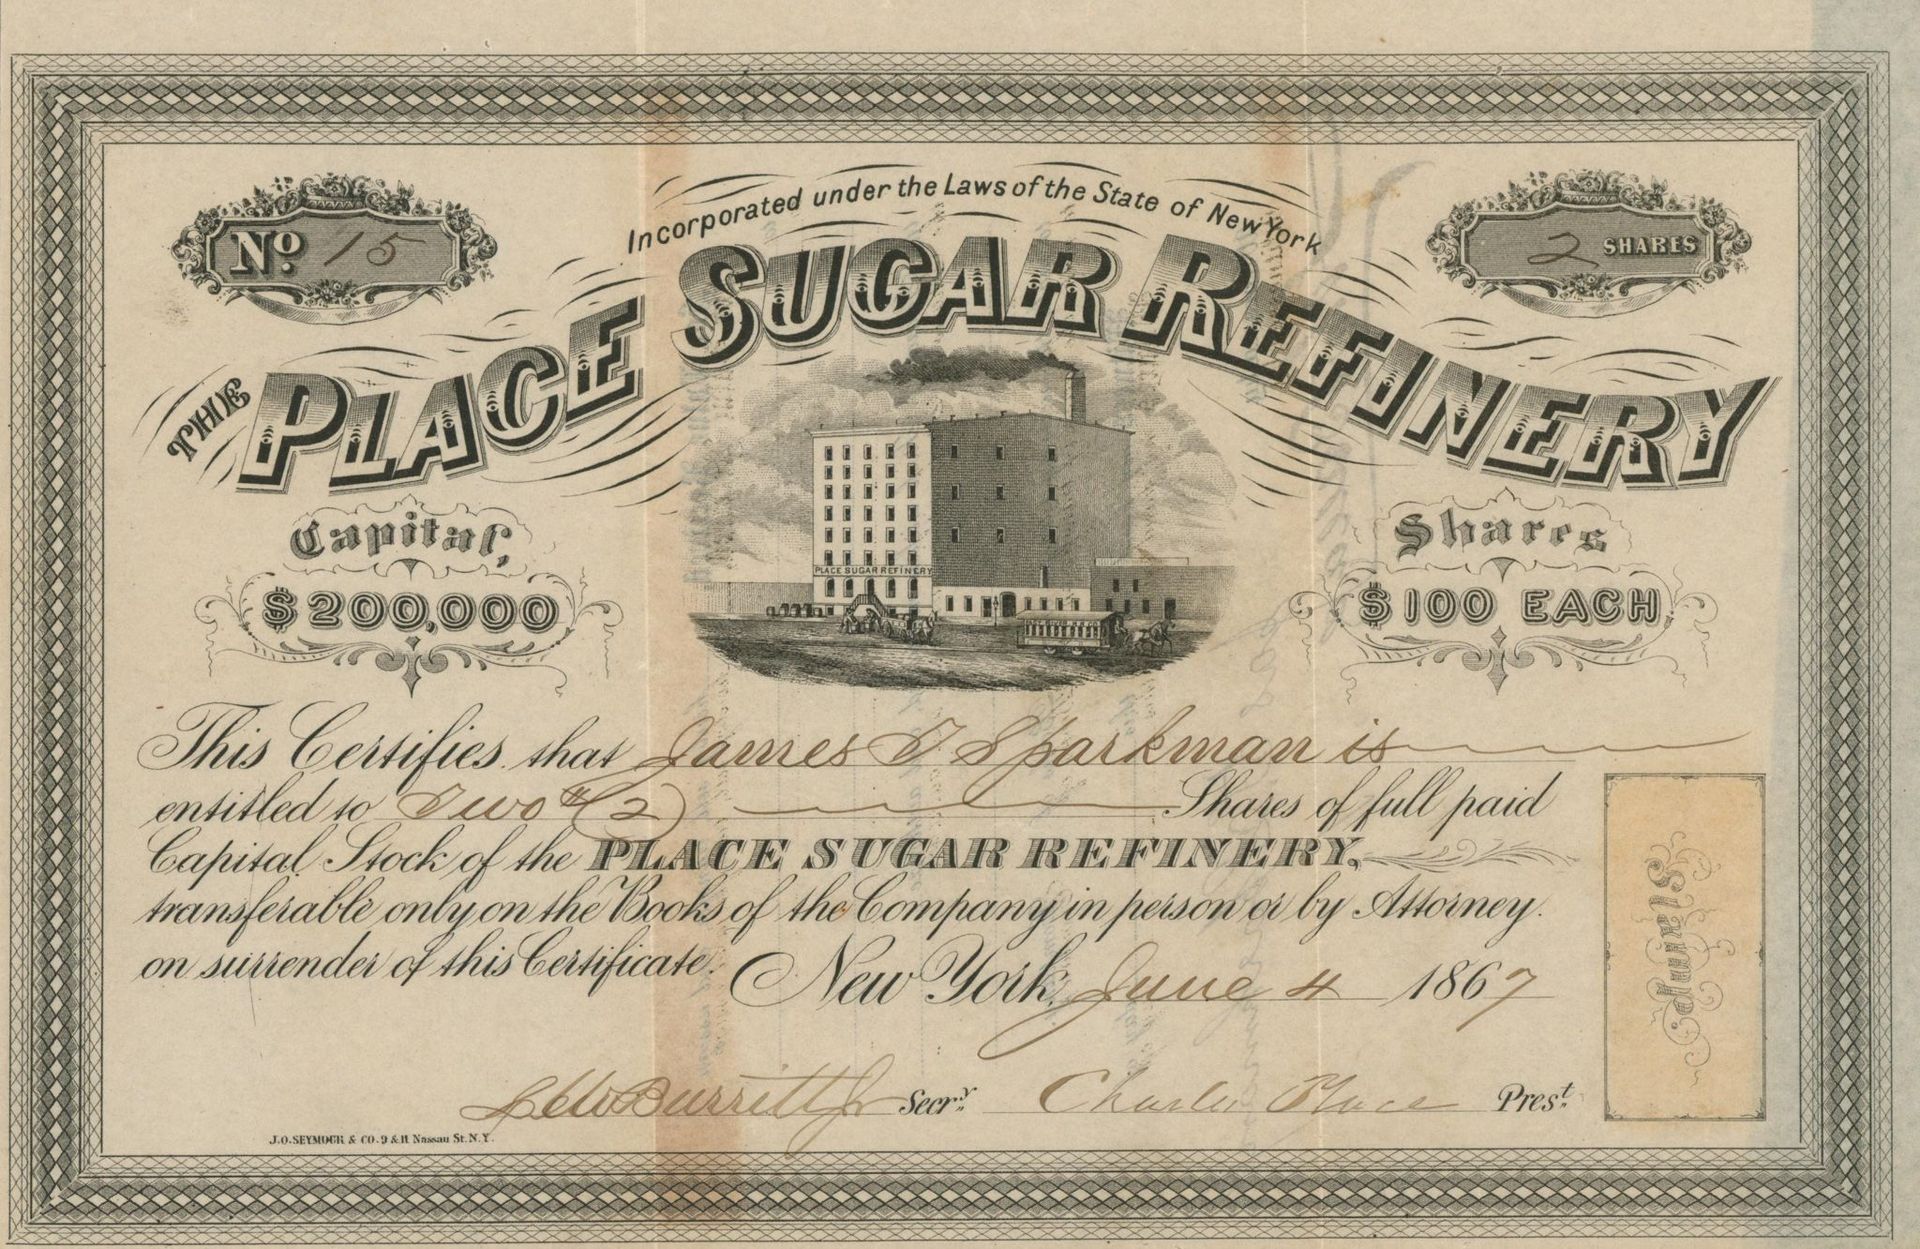 Incorporated under the Laws of the State of New York
No. 15
2 SHARES
THE PLACE SUGAR REFINERY
Capital,
$200,000
Shares
$100 EACH
PLACE SUGAR REFINERY
This Certifies that James T Sparkman is
entitled to Two # (2) Shares of full paid
Capital Stock of the PLACE SUGAR REFINERY,
transferable only on the Books of the Company in person or by Attorney.
on surrender of this Certificate.
New York, June 4 1867
Burritt Jr Secry. Charles Place Prest.
Stamp.
J.O. SEYMOUR & CO. 9 & 11 Nassau St. N.Y.